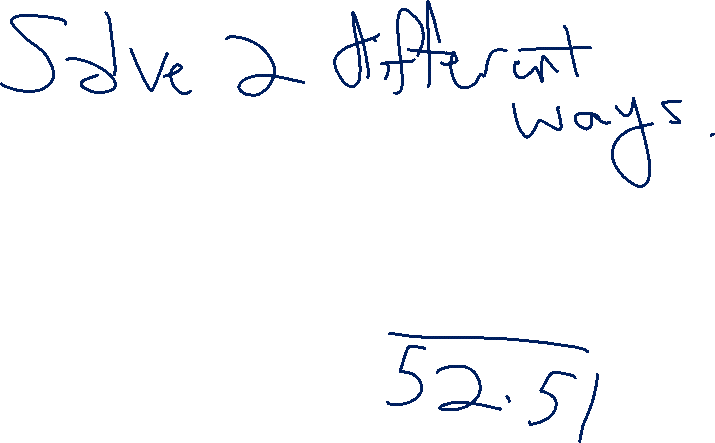 Solve 2 different
ways.
52.51